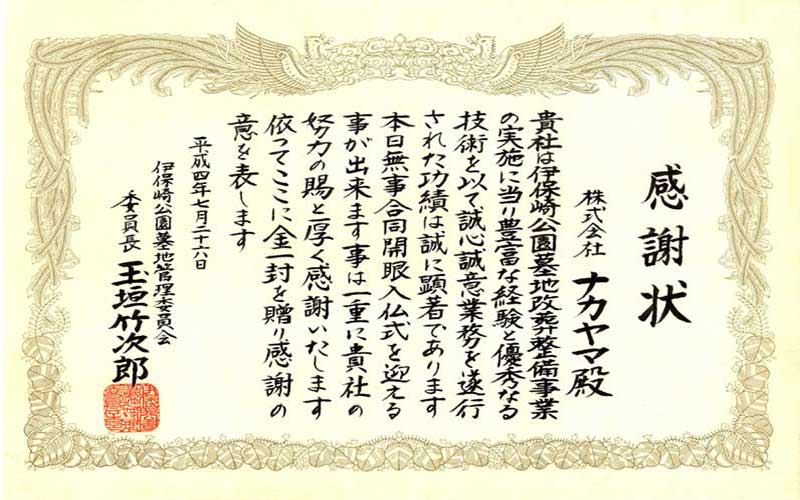 感謝状
株式会社 ナカヤマ殿
貴社は伊保崎公園墓地改葬整備事業
の実施に当り豊富な経験と優秀なる
技術を以て誠心誠意業務を遂行
された功績は誠に顕著であります
本日無事合同開眼入仏式を迎える
事が出来ます事は一重に貴社の
努力の賜と厚く感謝いたします
依ってここに金一封を贈り感謝の
意を表します
平成四年七月二十六日
伊保崎公園墓地管理委員会
委員長 玉垣竹次郎